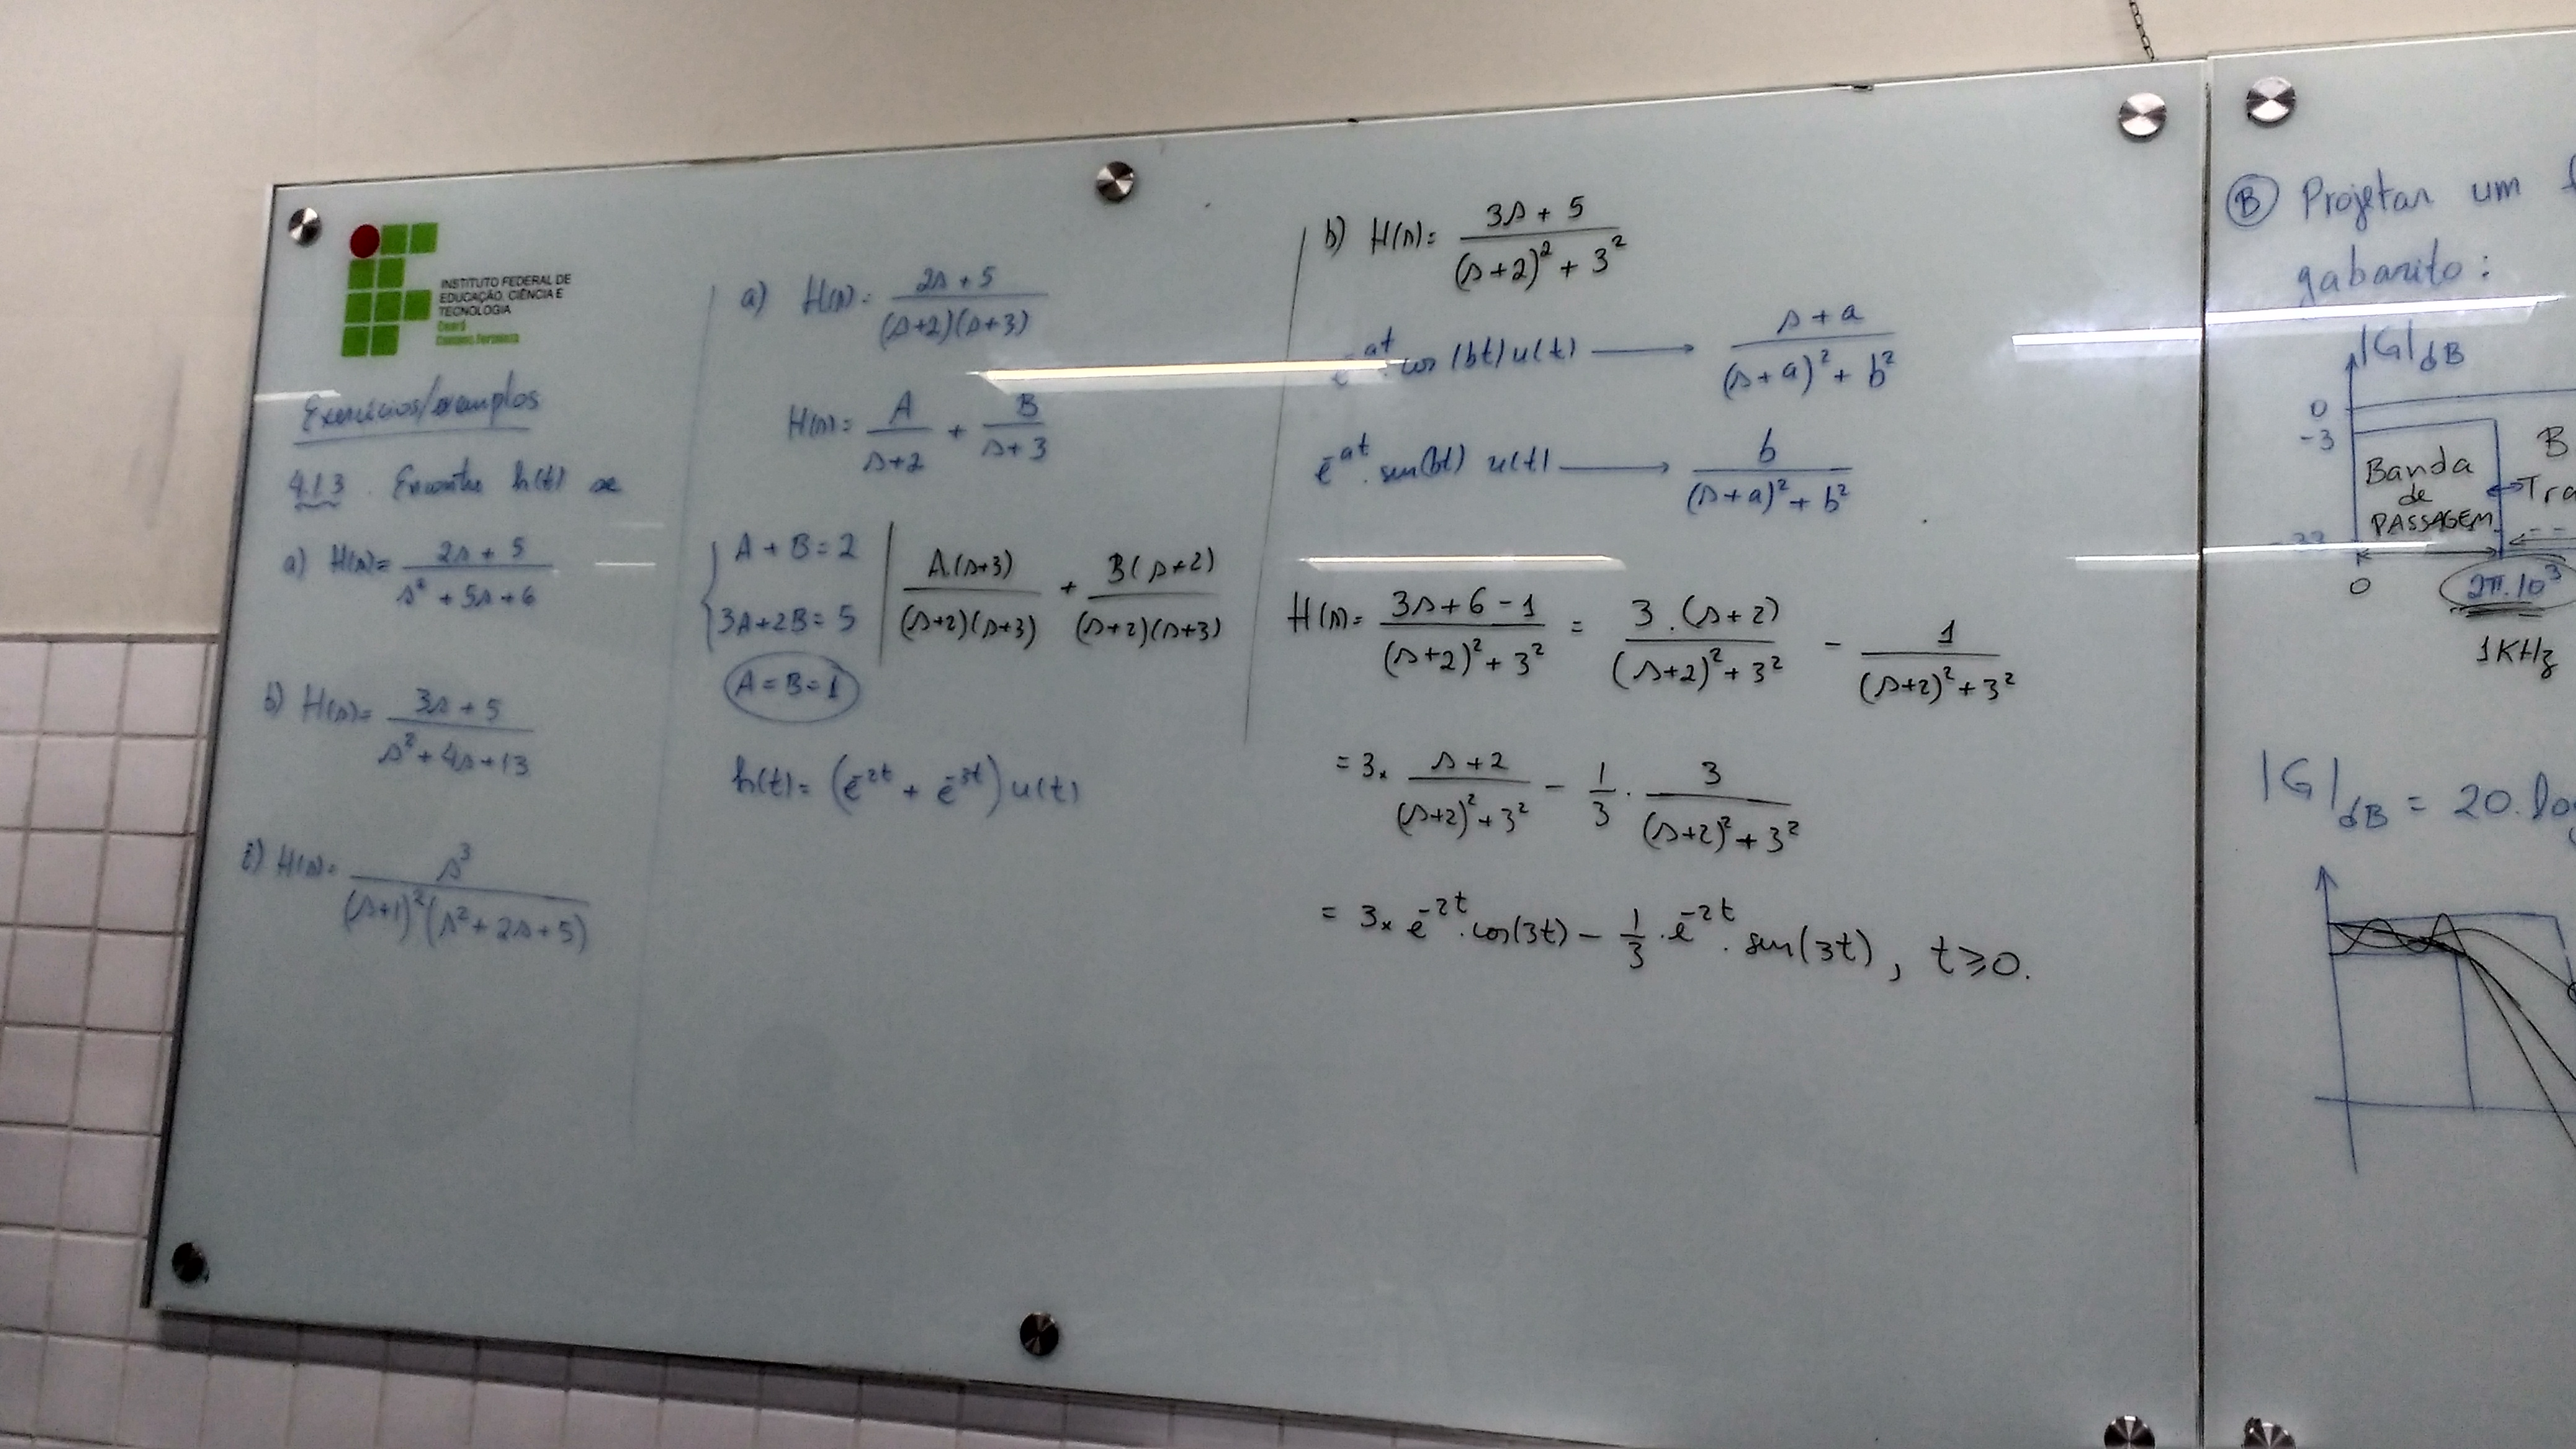 INSTITUTO FEDERAL DE
EDUCAÇÃO, CIÊNCIA E
TECNOLOGIA
Ceará
Campus Fortaleza
Exercícios/exemplos
4.13. Encontre h(t) se
a) H(s)= (2s + 5)/(s² + 5s + 6)
b) H(s)= (3s + 5)/(s² + 4s + 13)
c) H(s)= s³/((s+1)²(s² + 2s + 5))
a) H(s)= (2s + 5)/((s+2)(s+3))
H(s)= A/(s+2) + B/(s+3)
A + B = 2
3A+2B = 5
A = B = 1
A.(s+3)/((s+2)(s+3)) + B(s+2)/((s+2)(s+3))
h(t)= (e^-2t + e^-3t) u(t)
b) H(s)= (3s + 5)/((s+2)² + 3²)
e^-at . cos(bt) u(t) → (s + a)/((s+a)² + b²)
e^-at . sen(bt) u(t) → b/((s+a)² + b²)
H(s)= (3s+6-1)/((s+2)² + 3²) = 3.(s+2)/((s+2)² + 3²) - 1/((s+2)² + 3²)
= 3. (s+2)/((s+2)² + 3²) - 1/3 . 3/((s+2)² + 3²)
= 3. e^-2t . cos(3t) - 1/3 . e^-2t . sen(3t), t ≥ 0.
B Projetar um
gabarito:
|G|dB
0
-3
Banda
de
PASSAGEM
B
Tra
0
2π.10³
1KHz
|G|dB = 20.log